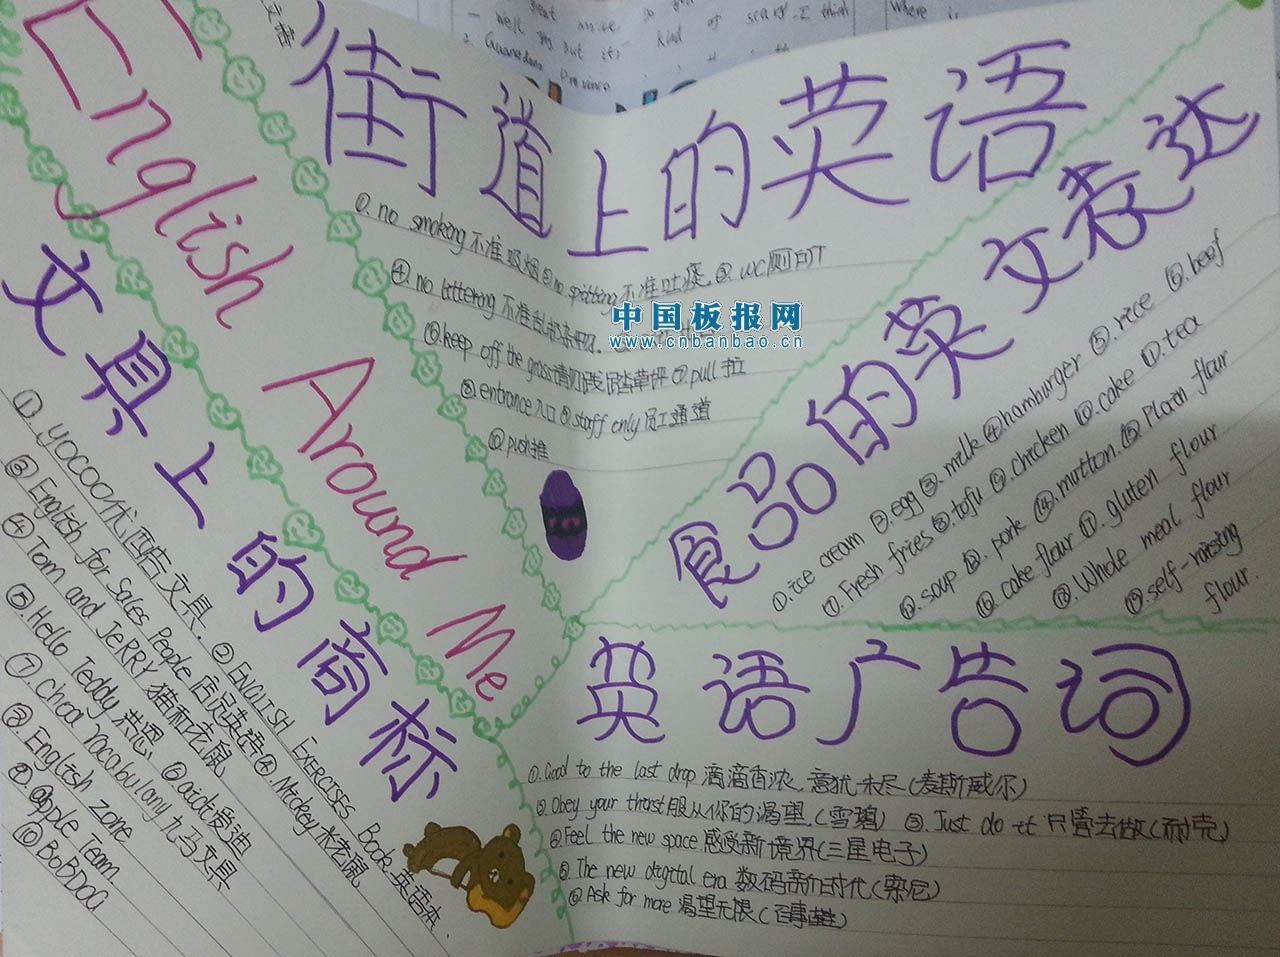 English Around Me
街道上的英语
①. no smoking 不准吸烟 ②no spitting 不准吐痰. ③. WC厕所
④. no littering 不准乱扔杂物.
⑥keep off the grass请勿践踏草坪 ⑦pull 拉
⑧entrance入口 ⑨staff only 员工通道
⑩push推
中国板报网
www.cnbanbao.cn
食品的英文表达
①.ice cream ②.egg ③.milk ④hamburger ⑤.rice ⑥.beef
⑦.Fresh fries ⑧.tofu ⑨.chicken ⑩.cake ⑪.tea
⑫.soup ⑬.pork ⑭.mutton. ⑮.Plain flour
⑯.cake flour ⑰.gluten flour
⑱.Whole meal flour
⑲self-raising
flour.
文具上的商标
①.YOCOO优酷文具. ②ENGLISH EXERCISES Book 英语本.
③English for Sales People 店员英语 ④.Mickey 米老鼠
④Tom and JeRRY 猫和老鼠
⑤.Hello Teddy 洪恩 ⑥aidi爱迪
⑦.Cheal Vocabulany 九马文具
⑧.English zone
⑨.apple Team.
⑩BoBDoG
英语广告词
①.Good to the last drop 滴滴香浓,意犹未尽(麦斯威尔)
②Obey your thirst服从你的渴望.(雪碧) ③.Just do it 只管去做(耐克)
④Feel the new space 感受新境界(三星电子)
⑤The new digital era 数码新时代(索尼)
⑥Ask for more 渴望无限(百事)